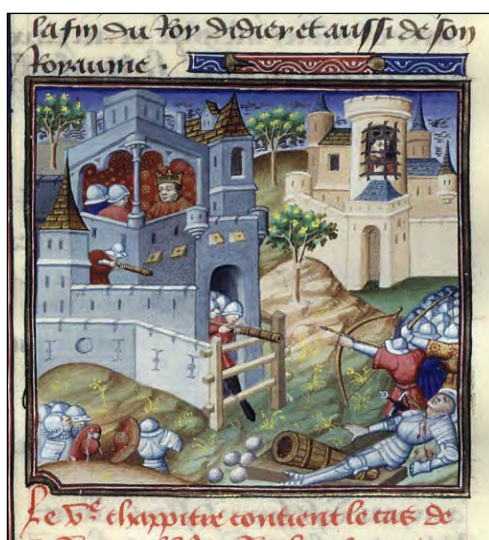 la fin du Roy didier et aussi de son
Royaume .
Le Ve chappitre contient le cas de